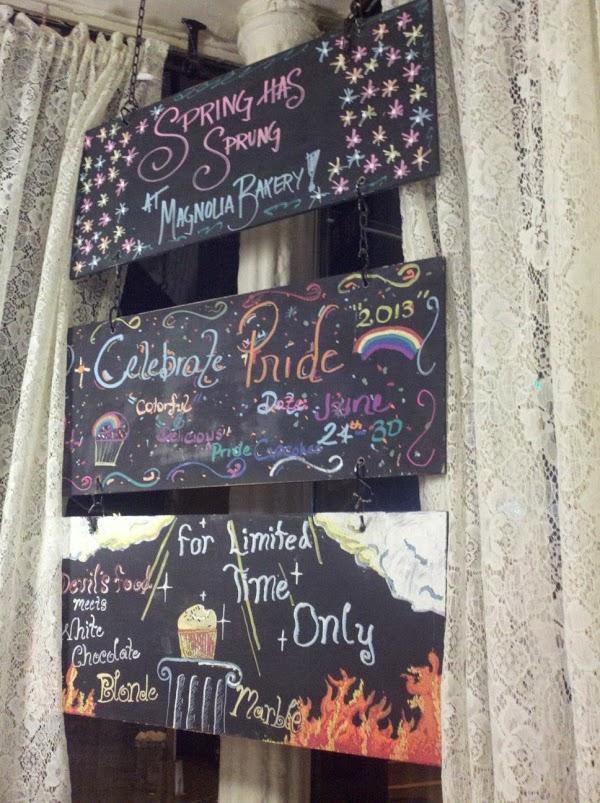 SPRING HAS
SPRUNG
AT MAGNOLIA BAKERY!
Celebrate Pride "2013"
"Colorful" Date: June
& 24th - 30
"Delicious"
Pride Cupcakes
for Limited
Time
Only
Devil's food
meets
White
Chocolate
Blonde
Marble